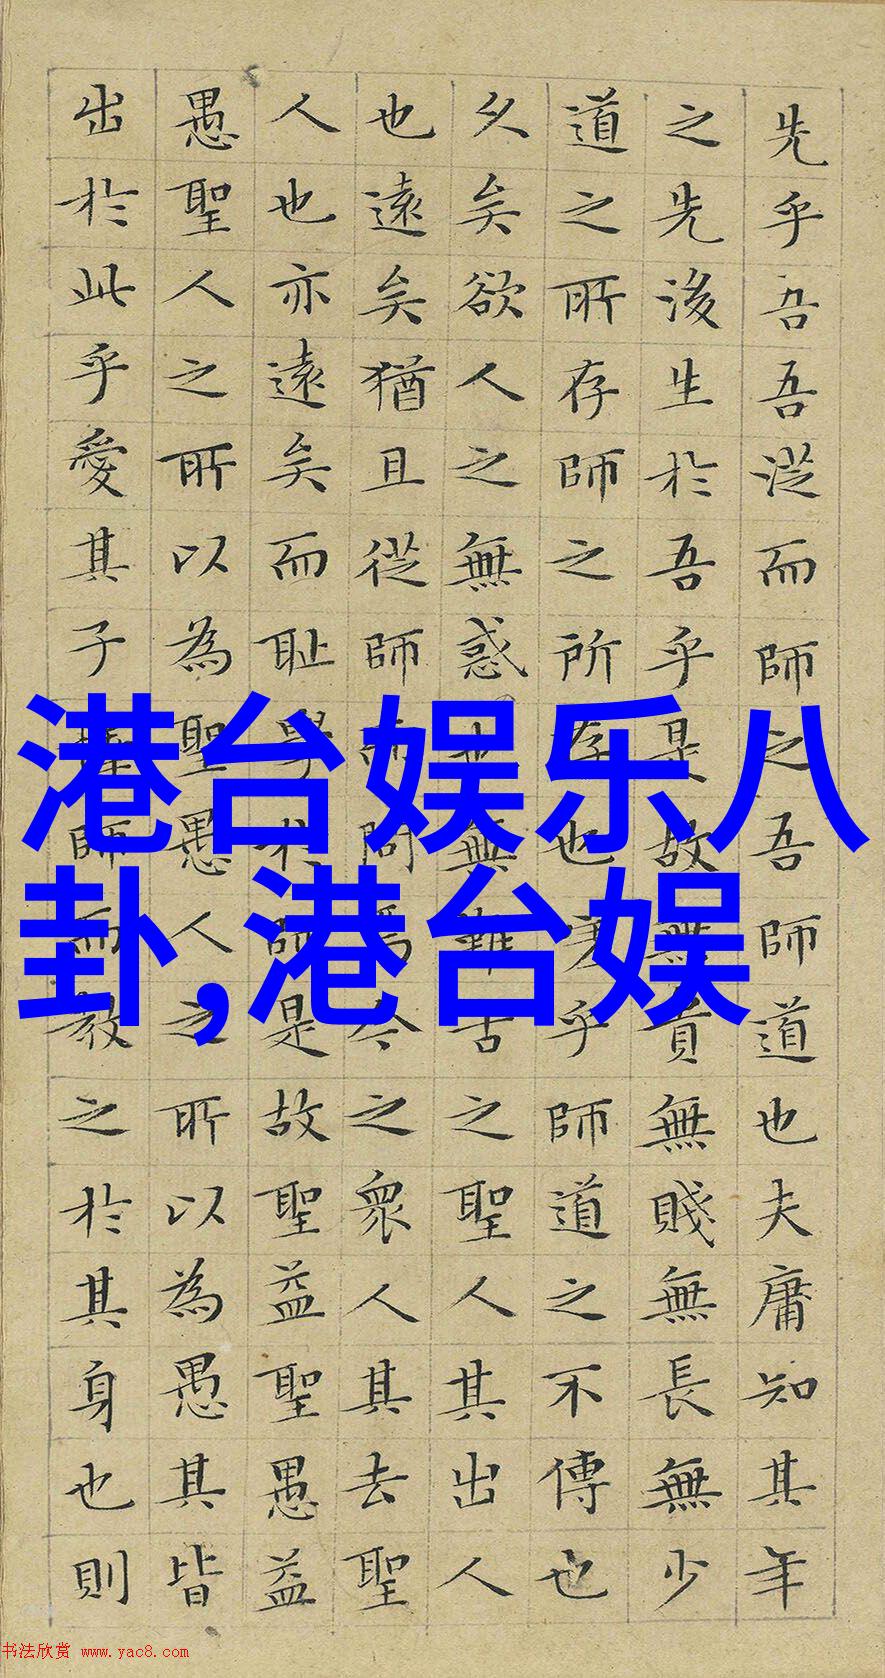 先乎吾吾從而師之吾師道也夫庸知其年
之先後生於吾乎是故無貴無賤無長無少
道之所存師之所存也嗟乎師道之不傳也
久矣欲人之無惑也無難古之聖人其出人
也遠矣猶且從師而問焉今之衆人其去聖
人也亦遠矣而耻學於師是故聖益聖愚益
愚聖人之所以為聖愚人之所以為愚其皆
出於此乎愛其子擇師而教之於其身也則
港台娱乐八
卦,港台娱
书法欣赏 www.yac8.com